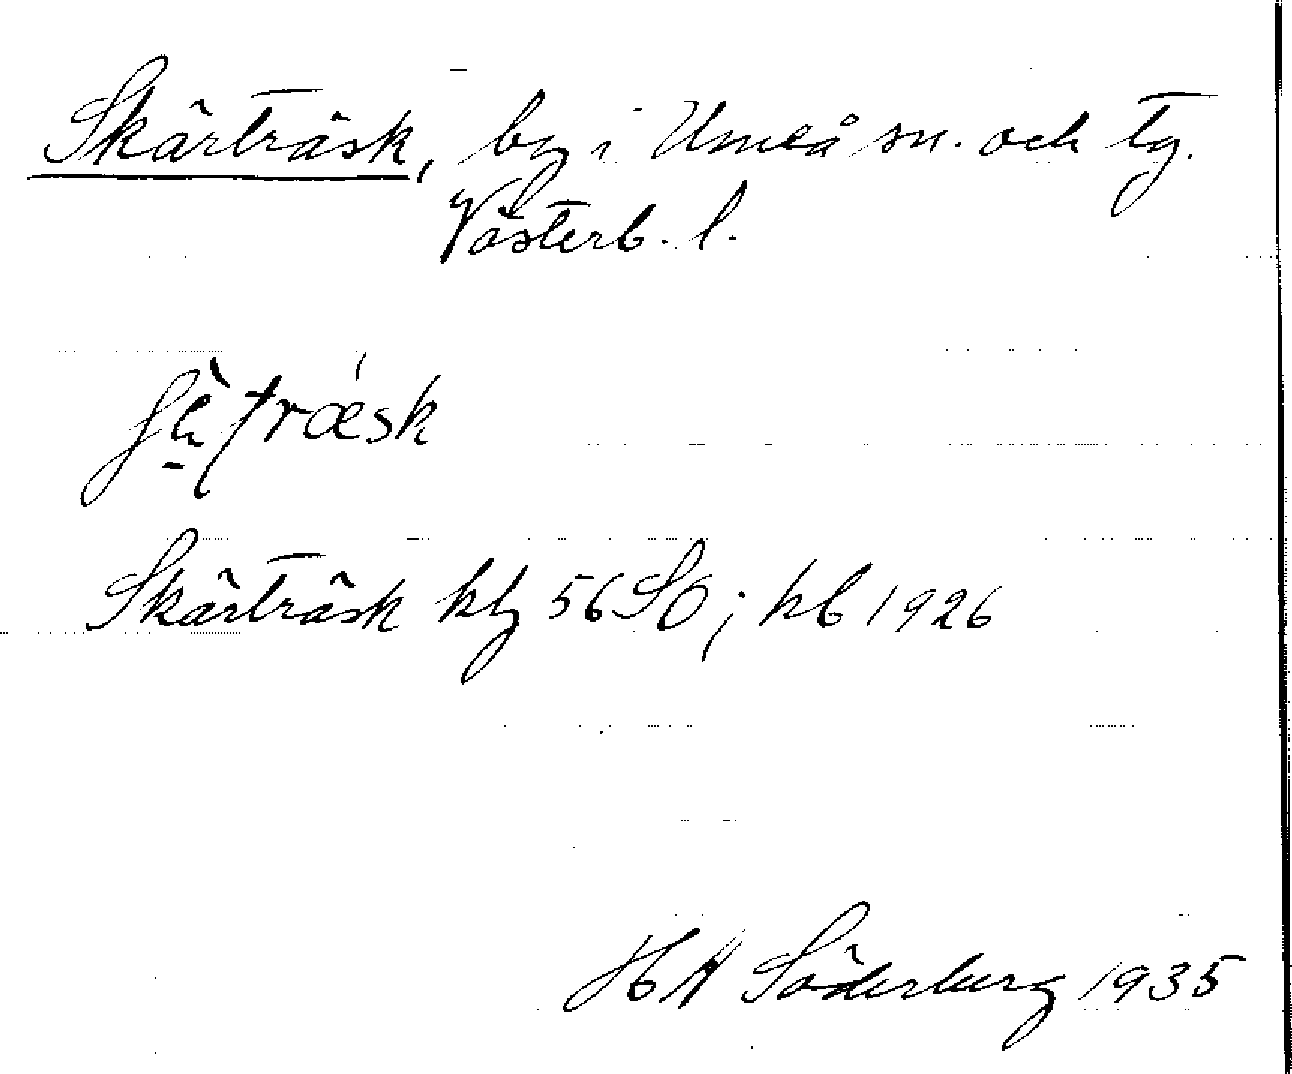 Skärträsk, by i Umeå sn. och tg.
Västerb. l.
Skärträsk kbl 56 SO; kb 1926
H A Söderberg 1935